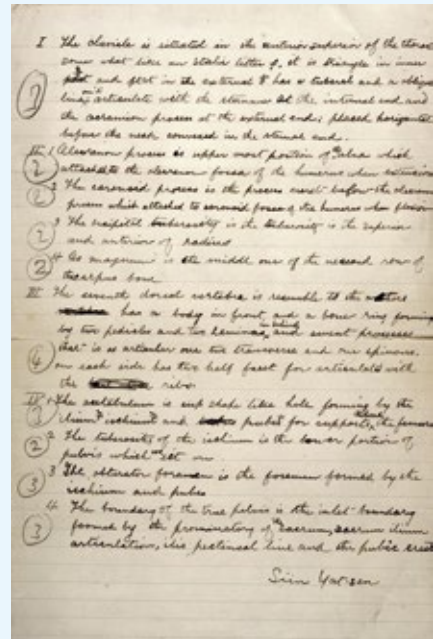 I The clavicle is situated in the anterior superior of the thorax
some what like an Italic letter f. it is triangle in inner
and flat in the external & has a tubercle and a oblique
line, articulate with the sternum at the internal end and
the acromion process at the external end; placed horizontal
before the neck convexed in the sternal end.
1 Olecranon process is upper most position of Ulna which
attached to the olecranon fossa of the humerus when extension
2 The coronoid process is the process crest below the olecranon
process which attached to coronoid fossa of the humerus when flexion
3 The bicipital tuberosity is the tuberosity is the superior
and anterior of radius
4 Os magnum is the middle one of the second row of
the carpus bone
III The seventh dorsal vertebra is resemble to the
has a body in front, and a bone ring forming
by two pedicles and two laminae, in behind and seven processes
that is articular one two transverse and one spinous.
on each side has two half facet for articulate with
the ribs
IV 1 The acetabulum is cup shape like hole forming by the
ilium ischium and pubes for supports the femur
2 The tuberosity of the ischium is the lower portion of
pelvis which set on
3 The obturator foramen is the foramen formed by the
ischium and pubes
4 The boundary of the true pelvis is the inlet boundary
formed by the promontory of the sacrum, sacrum ilium
articulation, ilio pectineal line and the pubic crest
Sün Yat sen